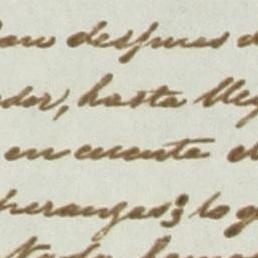 ron despues d
ador, hasta lleg
en cuenta el
peranzas; lo q